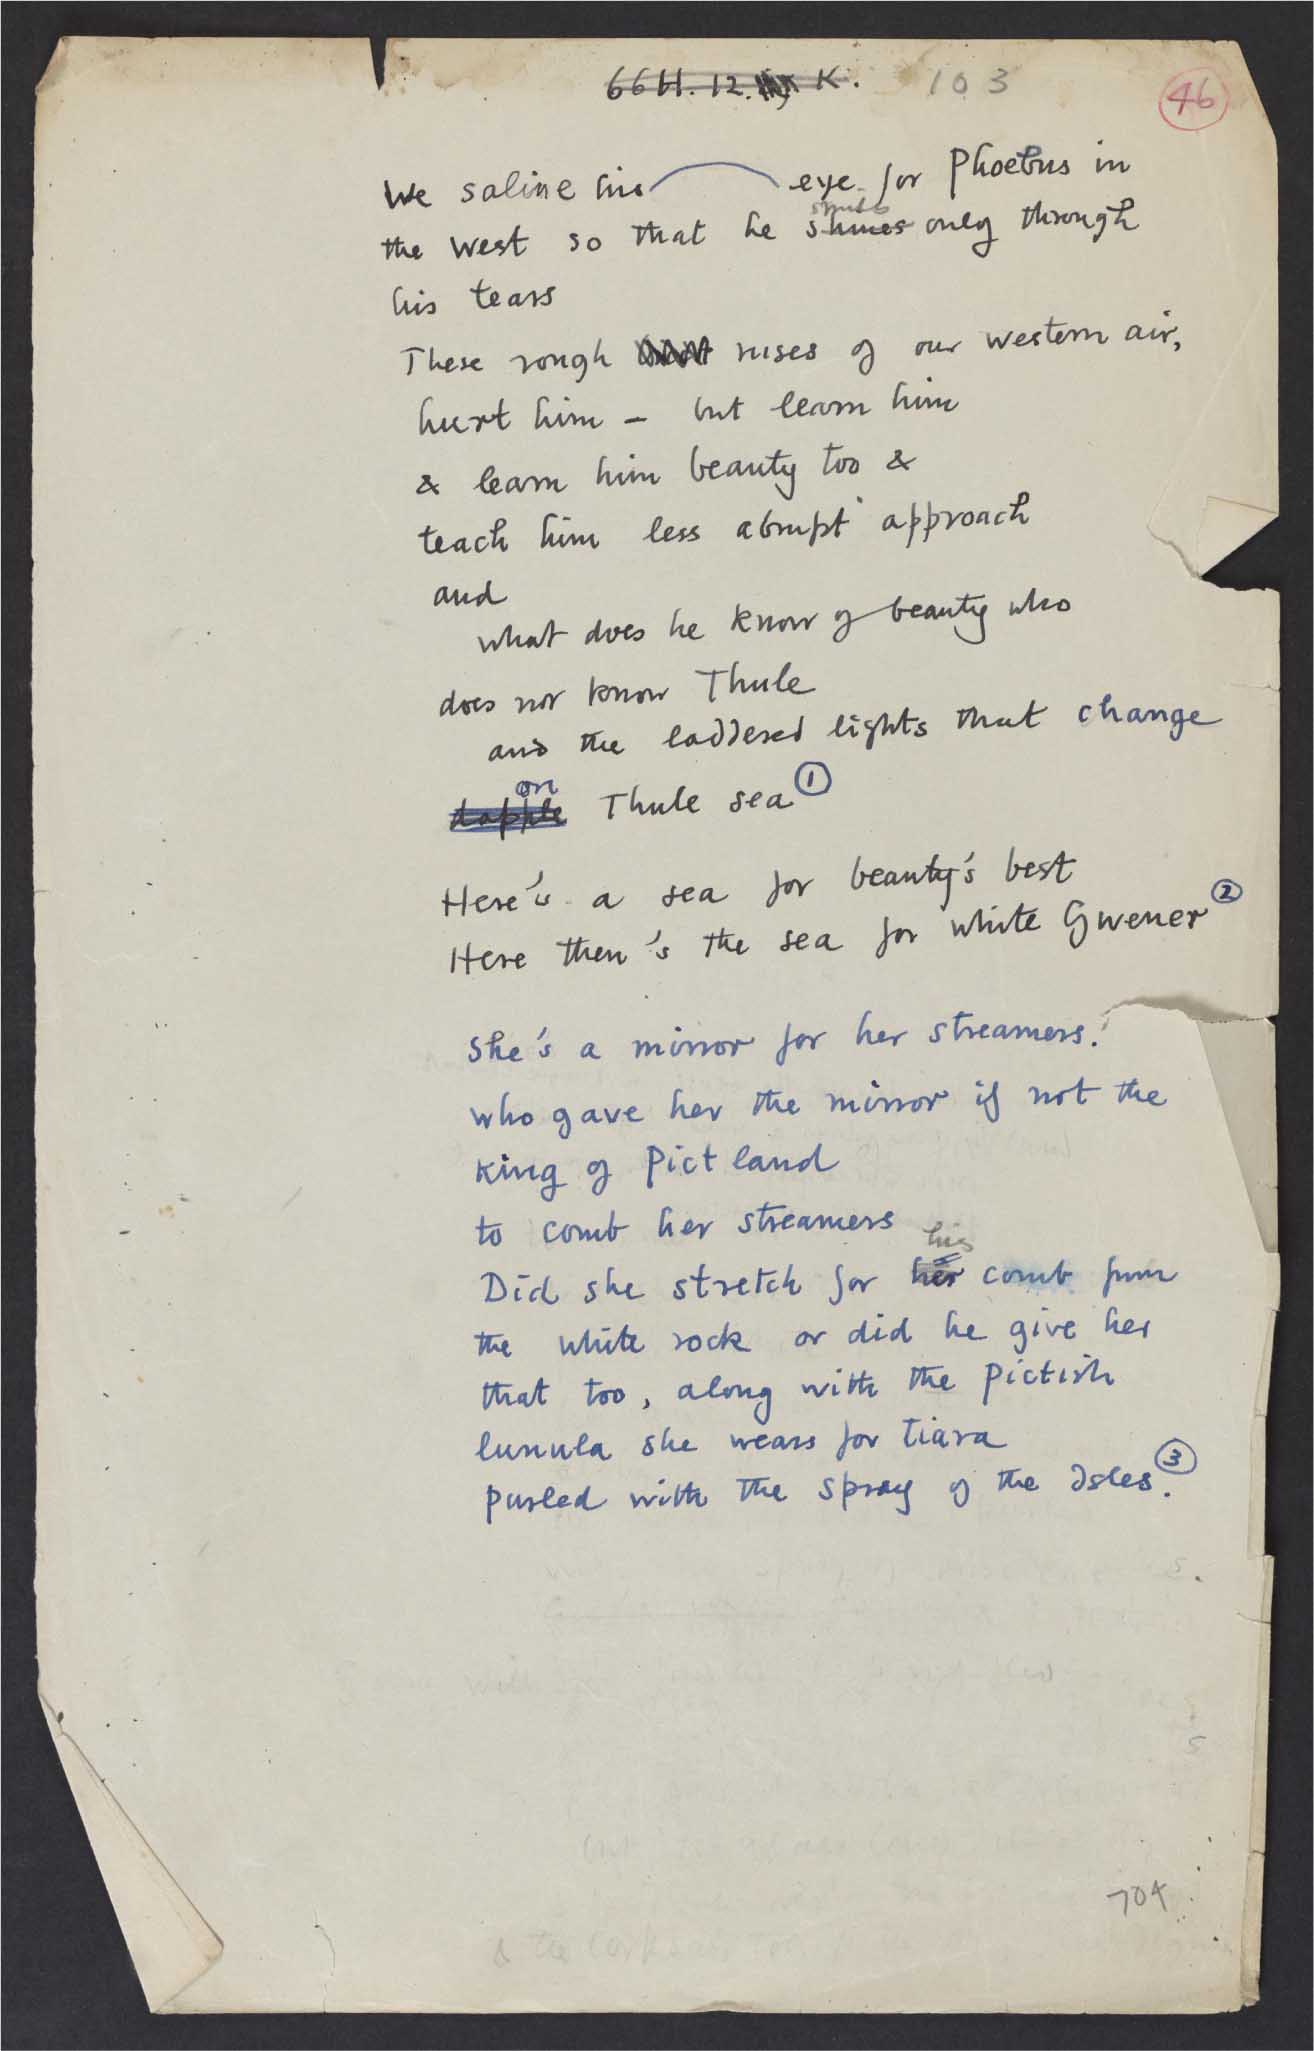 66 H. 12. K. 103 46
We saline his eye for Phoebus in
smiles
the West so that he shines only through
his tears
These rough nises of our western air,
hurt him – but learn him
& learn him beauty too &
teach him less abrupt approach
and
what does he know of beauty who
does not know Thule
and the laddered lights that change
on
dapple Thule sea ①
Here's a sea for beauty's best
Here then's the sea for white Gwener ②
She's a mirror for her streamers!
who gave her the mirror if not the
King of Pictland
to comb her streamers
his
Did she stretch for her comb from
the white rock or did he give her
that too, along with the Pictish
lunula she wears for tiara
purled with the spray of the Isles. ③
704